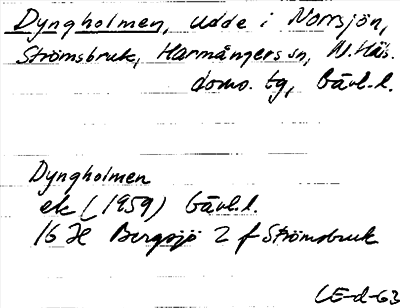 Dyngholmen, udde i Norrsjön,
Strömsbruk, Harmångers sn, N. Häls.
doms. tg, Gävl.l.
Dyngholmen
ek (1959) Gävl.l.
16 H Bergsjö 2 f Strömsbruk
CE-d-63